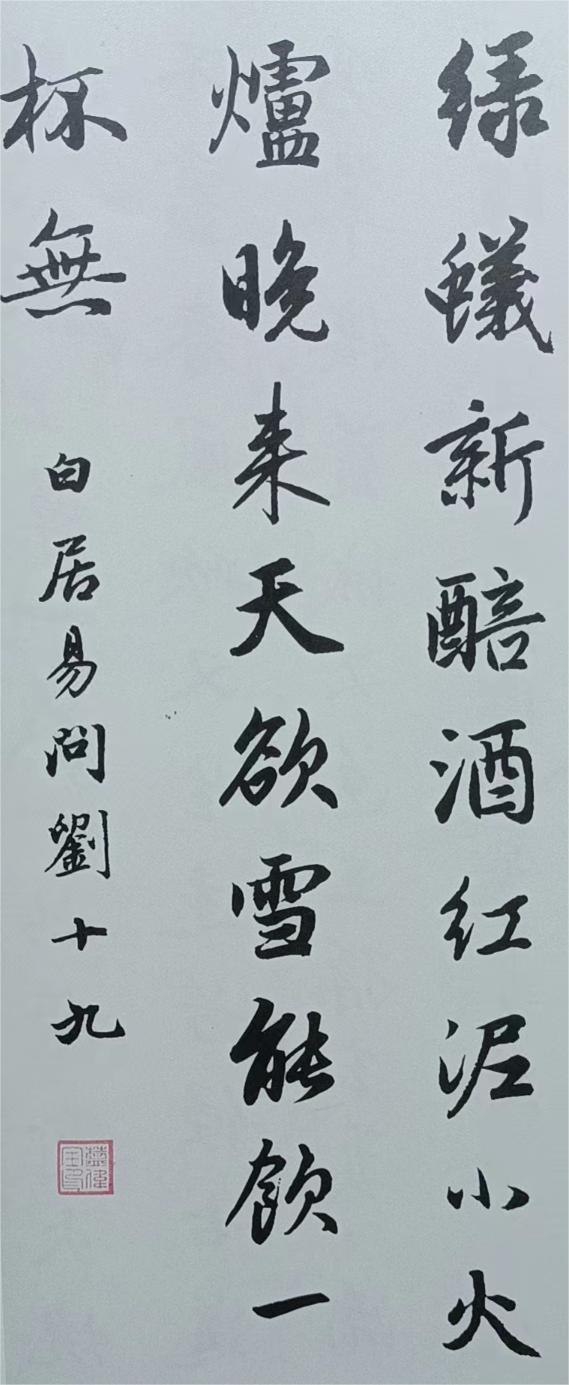 绿蟻新醅酒红泥小火
爐晚来天欲雪能飲一
杯無
白居易问劉十九